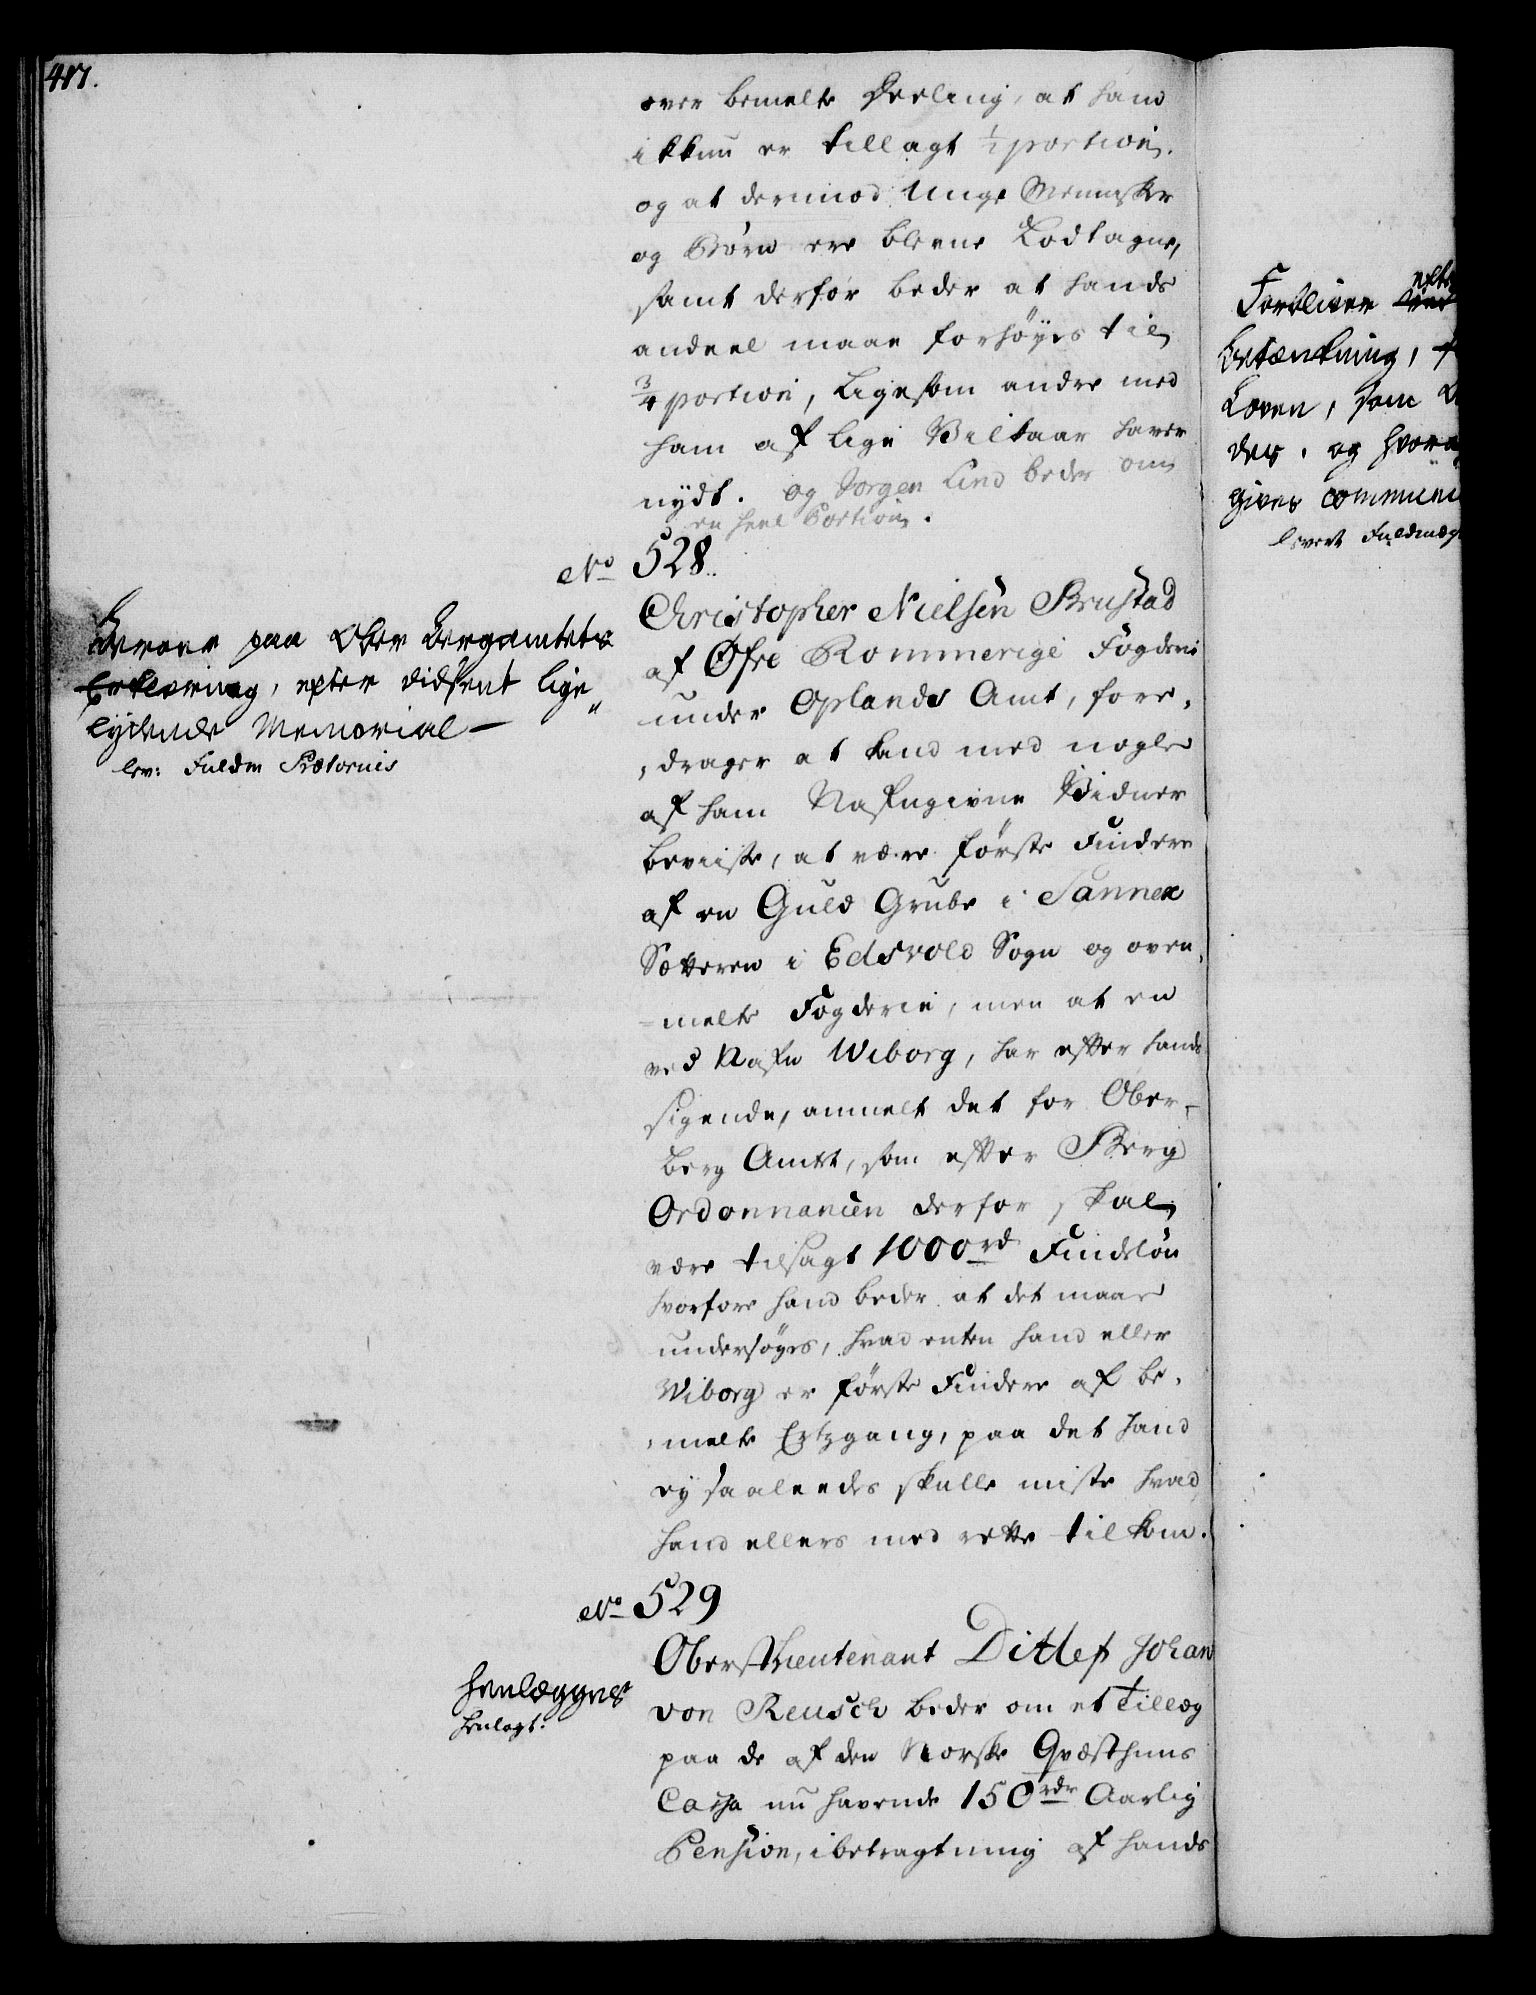 417.
over bemelte Deeling, at hand
ikkun er tillagt 1/2 portion.
og at derimod Unge Mennisker
og Børn ere blevne Lodtagne,
samt derfor beder at hands
andeel maae forhøyes til
3/4 portion, ligesom andre med
ham af lige Vilkaar haver
nydt. og Jorgen Lind beder om
en heel Portion.
No 528.
Beroer paa Ober Bergamtets
Erklæring, efter didsent lige„
lydende Memorial —
lev: Fuldm Prætorius
Christopher Nielsen Brustad
af Øfre Rommerige Fogderi
under Oplands Amt, fore,
,drager at kand med nogle
af ham Nafngivne Vidner
beviise, at være første Findere
af en Guld Grube i Sannex
Sætteren i Edsvold Sogn og oven,
=melte Fogderie, men at en
ved Nafn Wiborg, har efter hands
sigende, anmelt det for Ober-
berg Amtet, som efter Berg
Ordonnancien derfor skal
være tilsagt 1000 rd Findeløn
hvorfore hand beder at det maae
undersøges, hvad enten hand eller
Wiborg er første Findere af be,
,melte Ertzgang, paa det hand
ey saaleedes skulle miste hvad
hand ellers med rette tilkom.
No 529
Henlægges
henlagt.
Oberstlieutenant Ditlef Johan
von Reusch beder om et Tillæg
paa de af den Norske Qvæsthuus
Cassa nu havende 150 rdr Aarlig
Pension, i betragtning af hands
betænkning,
Loven, som
des, og
gives